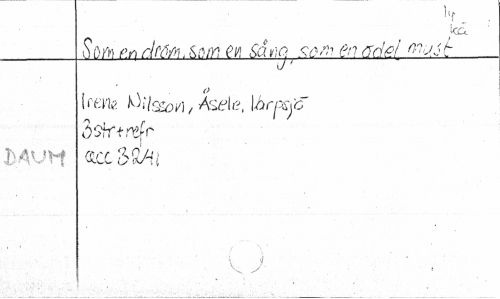 ly
kä
Som en dröm, som en sång, som en ädel must
Irene Nilsson, Åsele, Varpsjö
3str+refr
DAUM acc 3241